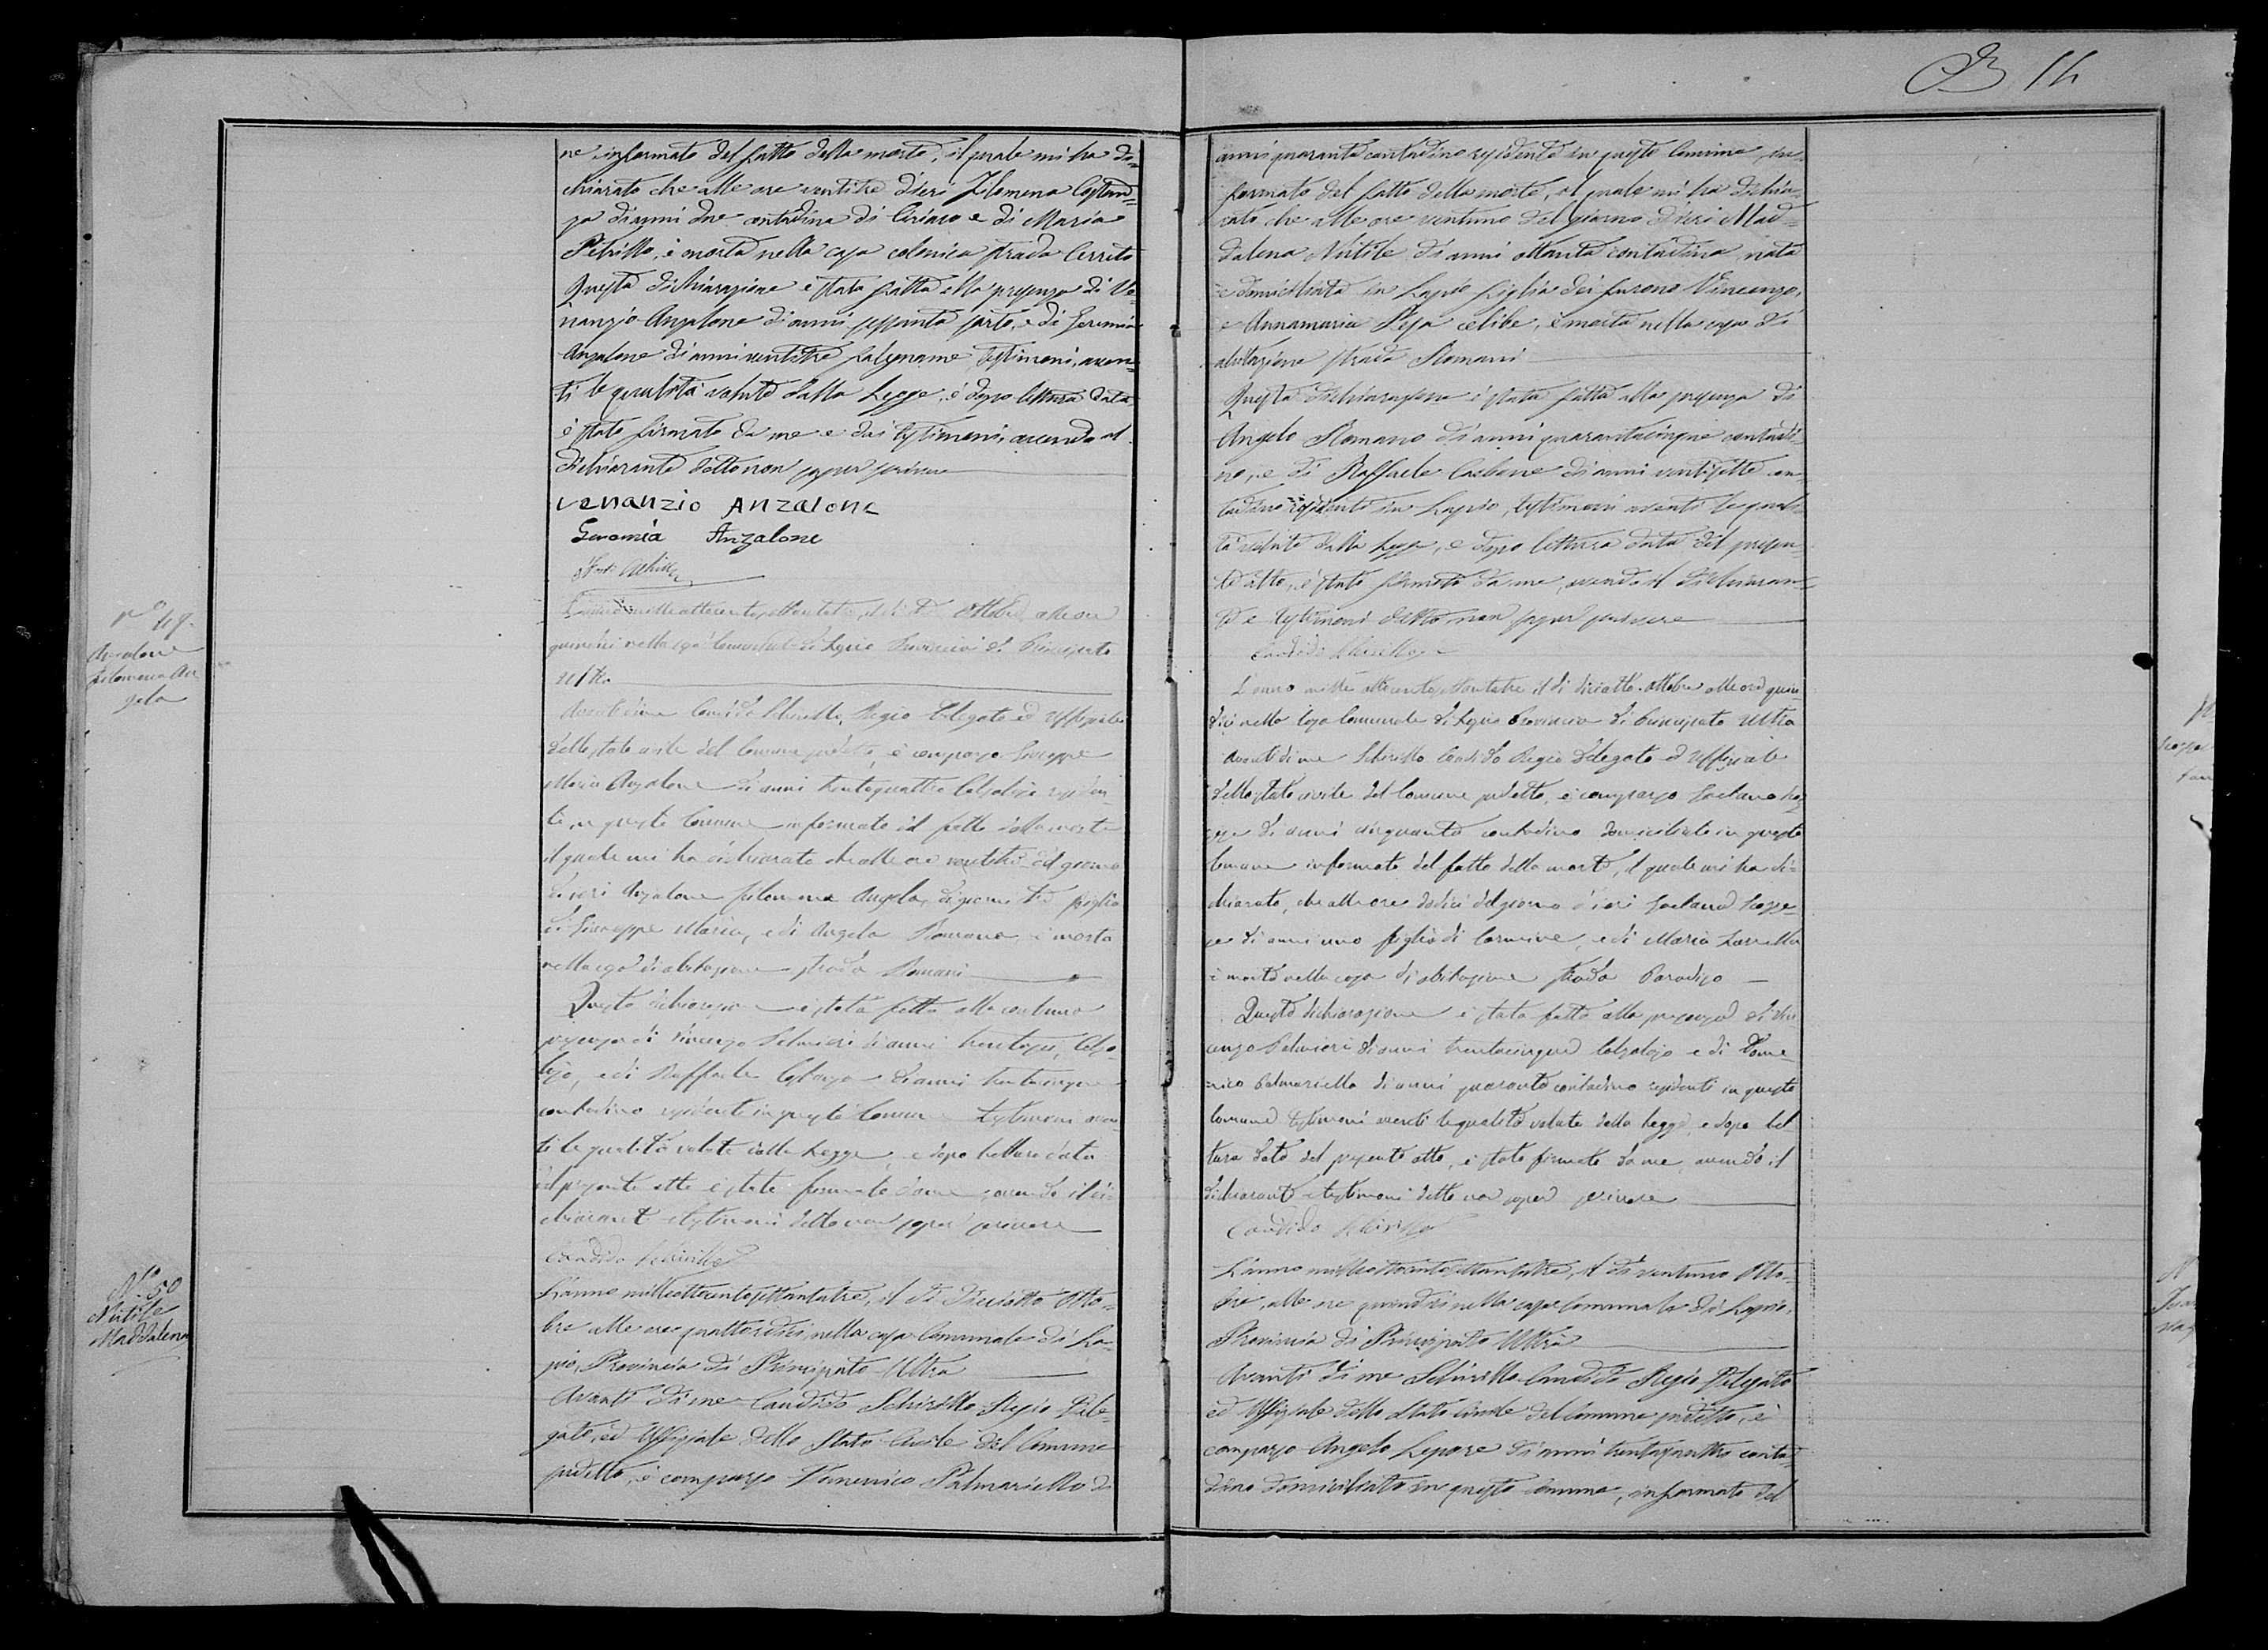 B 14
ne informato del fatto della morte, il quale mi ha di=
chiarato che alle ore ventitre d'ieri Filomena Costan=
za di anni due contadina di Ciriaco e di Maria
Petrillo, è morta nella casa colonica strada Cerrito
Questa dichiarazione è stata fatta alla presenza di Ve=
nanzio Anzalone di anni sessanta sarto, e di Geremia
Anzalone di anni ventitre falegname testimoni, aven=
ti le qualità volute dalla Legge, e dopo lettura data
è stato firmato da me e dai testimoni, avendo il
dichiarante detto non saper scrivere
venanzio Anzalone
Geremia Anzalone
No 49.
Anzalone
Filomena An
gela
L'anno milleottocentosettantatre, il dì Ottobre alle ore
quindici nella casa Comunale di Lapio Provincia di Principato
Ultra
Avanti di me Candido Schirillo, Regio Delegato ed Uffiziale
dello stato civile del Comune predetto, è comparso Giuseppe
Maria Anzalone di anni trentaquattro Calzolajo residen=
te in questo Comune informato del fatto della morte
il quale mi ha dichiarato che alle ore ventitre del giorno
di ieri Anzalone Filomena Angela, di giorni figlia
di Giuseppe Maria, e di Angela Romano, è morta
nella casa di abitazione strada Romani
Questa dichiarazione è stata fatta alla continua
presenza di Vincenzo Palmieri di anni Calzo=
lajo, e di Raffaele di anni trentacinque
contadino residenti in questo Comune testimoni aven=
ti le qualità volute dalla Legge, e dopo lettura data
del presente atto è stato firmato da me avendo il di=
chiarante e testimoni detto non saper scrivere
Candido Schirillo
No 50
Nittile
Maddalena
L'anno milleottocentosettantatre, il dì Diciotto Otto=
bre alle ore quattordici nella casa Comunale di La=
pio, Provincia di Principato Ultra
Avanti di me Candido Schirillo Regio Dele=
gato, ed Uffiziale dello Stato Civile del Comune
predetto, è comparso Domenico Palmariello di
anni quaranta contadino residente in questo Comune, in=
formato del fatto della morte, il quale mi ha dichia=
rato che alle ore ventuno del giorno d'ieri Mad=
dalena Nittile di anni ottanta contadina, nata
e domiciliata in Lapio figlia dei furono Vincenzo,
e Annamaria celibe, è morta nella casa di
abitazione strada Romani
Questa dichiarazione è stata fatta alla presenza di
Angelo Romano di anni quarantacinque contadi=
no, e di Raffaele Carbone di anni ventisette con=
tadino residenti in Lapio, testimoni aventi le quali=
tà volute dalla Legge, e dopo lettura data del presen=
te atto, è stato firmato da me, avendo il dichiaran=
te e testimoni detto non saper scrivere
Candido Schirillo
L'anno mille ottocento settantatre il dì diciotto Ottobre alle ore quin=
dici nella Casa Comunale di Lapio Provincia di Principato Ultra
Avanti di me Schirillo Candido Regio Delegato ed Uffiziale
dello stato civile del Comune predetto, è comparso Gaetano
di anni cinquanta contadino domiciliato in questo
Comune informato del fatto della morte, il quale mi ha di=
chiarato, che alle ore dodici del giorno d'ieri Gaetano
di anni uno figlio di Carmine, e di Maria
è morto nella casa di abitazione strada Paradiso
Questa dichiarazione è stata fatta alla presenza di Vin
cenzo Palmieri di anni trentacinque Calzolajo e di Dome=
nico Palmariello di anni quaranta contadino residenti in questo
Comune testimoni aventi le qualità volute dalla Legge, e dopo let
tura data del presente atto, è stato firmato da me, avendo il
dichiarante e testimoni detto non saper scrivere
Candido Schirillo
L'anno milleottocentosettantatre, il dì ventuno Otto=
bre, alle ore quindici nella casa Comunale di Lapio,
Provincia di Principato Ultra
Avanti di me Schirillo Candido Regio Delegato
ed Uffiziale dello Stato Civile del Comune predetto, è
comparso Angelo Lepore di anni trentaquattro conta=
dino domiciliato in questo Comune, informato del